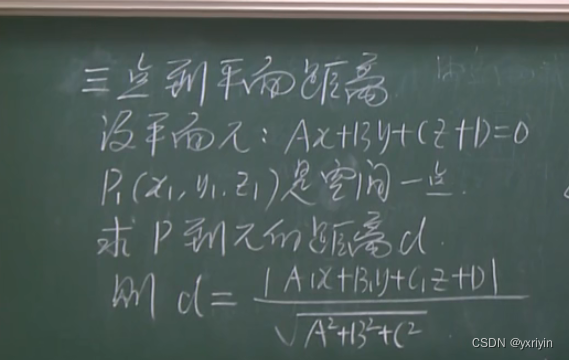 三 点到平面距离
设平面π: Ax+By+Cz+D=0
P₁(x₁, y₁, z₁)是空间一点.
求P到π的距离d.
则 d= |A₁x+B₁y+C₁z+D| / √(A²+B²+C²)
CSDN @yxriyin